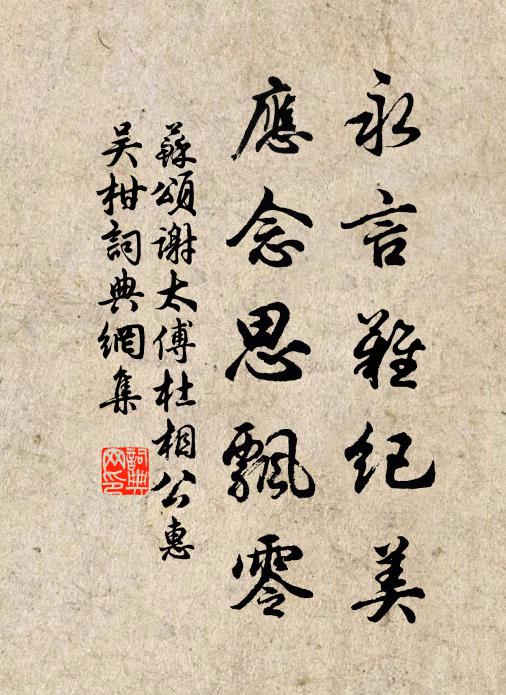 永言難紀美
應念思飄零
蘇頌謝太傅杜相公惠
吴柑詞典網集
詞典網印